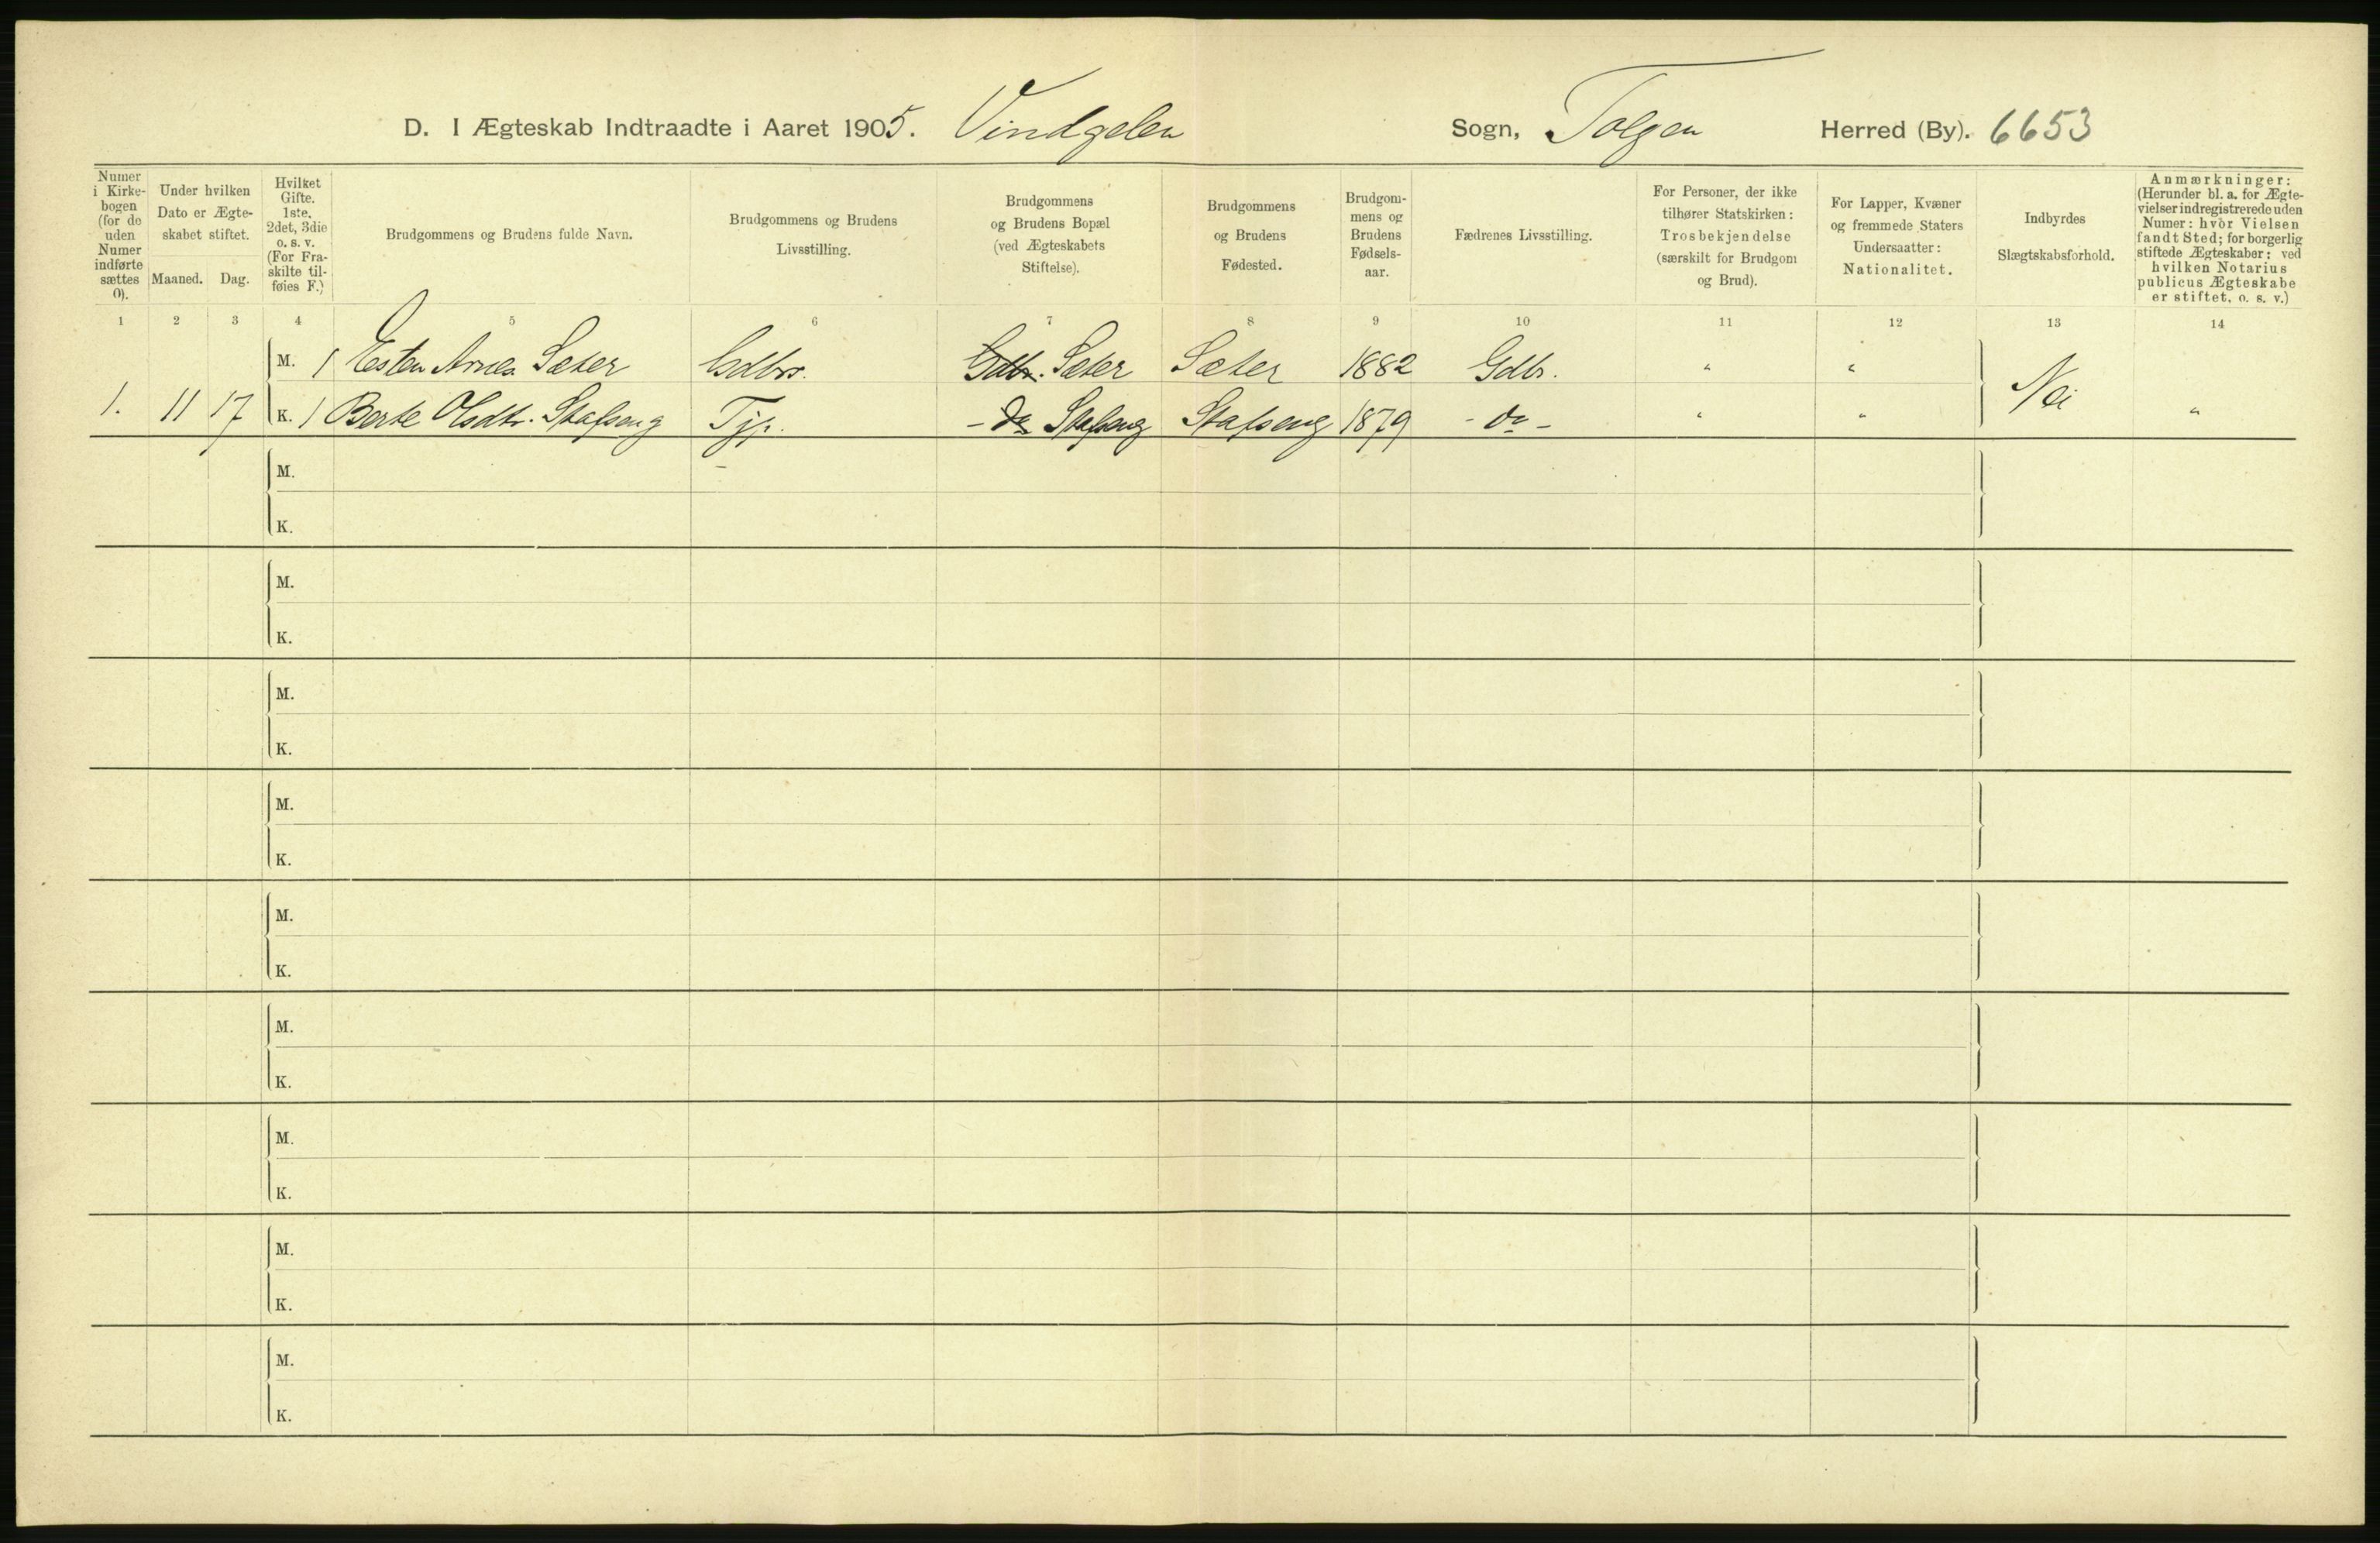 D. I Ægteskab Indtraadte i Aaret 1905. Vindgelen Sogn, Tolgen Herred (By). 6653
Numer i Kirkebogen (for de uden Numer indførte sættes 0).
Under hvilken Dato er Ægteskabet stiftet.
Maaned. Dag.
Hvilket Gifte. 1ste, 2det, 3die o. s. v. (For Fraskilte tilføies F.)
Brudgommens og Brudens fulde Navn.
Brudgommens og Brudens Livsstilling.
Brudgommens og Brudens Bopæl (ved Ægteskabets Stiftelse).
Brudgommens og Brudens Fødested.
Brudgommens og Brudens Fødselsaar.
Fædrenes Livsstilling.
For Personer, der ikke tilhører Statskirken: Trosbekjendelse (særskilt for Brudgom og Brud).
For Lapper, Kvæner og fremmede Staters Undersaatter: Nationalitet.
Indbyrdes Slægtskabsforhold.
Anmærkninger: (Herunder bl. a. for Ægtevielser indregistrerede uden Numer: hvor Vielsen fandt Sted; for borgerlig stiftede Ægteskaber: ved hvilken Notarius publicus Ægteskabe er stiftet, o. s. v.)
1 2 3 4 5 6 7 8 9 10 11 12 13 14
M. 1 Esten Arnes. Sæter Gdbr. Gdbr. Sæter Sæter 1882 Gdbr. " "
1. 11 17 K. 1 Berte Olsdtr. Stafseng Tjp. - Do Stafseng Stafseng 1879 - Do - " " Nei "
M.
K.
M.
K.
M.
K.
M.
K.
M.
K.
M.
K.
M.
K.
M.
K.
M.
K.